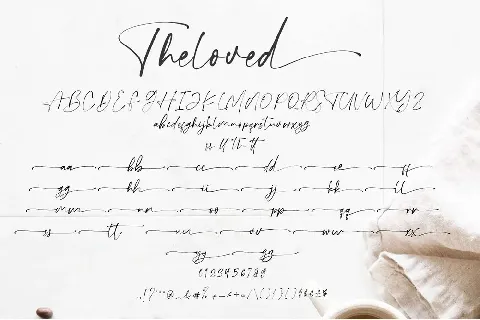 Theloved
ABCDEFGHIJKLMNOPQRSTUVWXYZ
abcdefghijklmnopqrstuvwxyz
tt
aa bb cc dd ee ff
gg hh ii jj kk ll
mm nn oo pp qq rr
ss tt uu vv ww xx
yy zz
0123456789